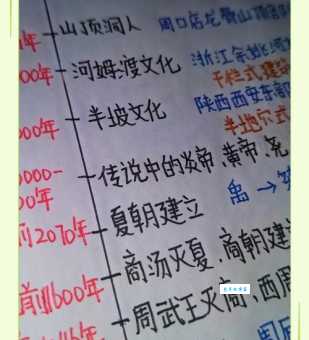 年 山顶洞人 周口店龙骨山顶部
00年 河姆渡文化 浙江余姚河
干栏式
00年 半坡文化 陕西西安东部
半地穴式
000- 传说中的炎帝、黄帝、尧
00年
前2070年 夏朝建立 禹→
前1600年 商汤灭夏、商朝建
年 周武王灭商、西周